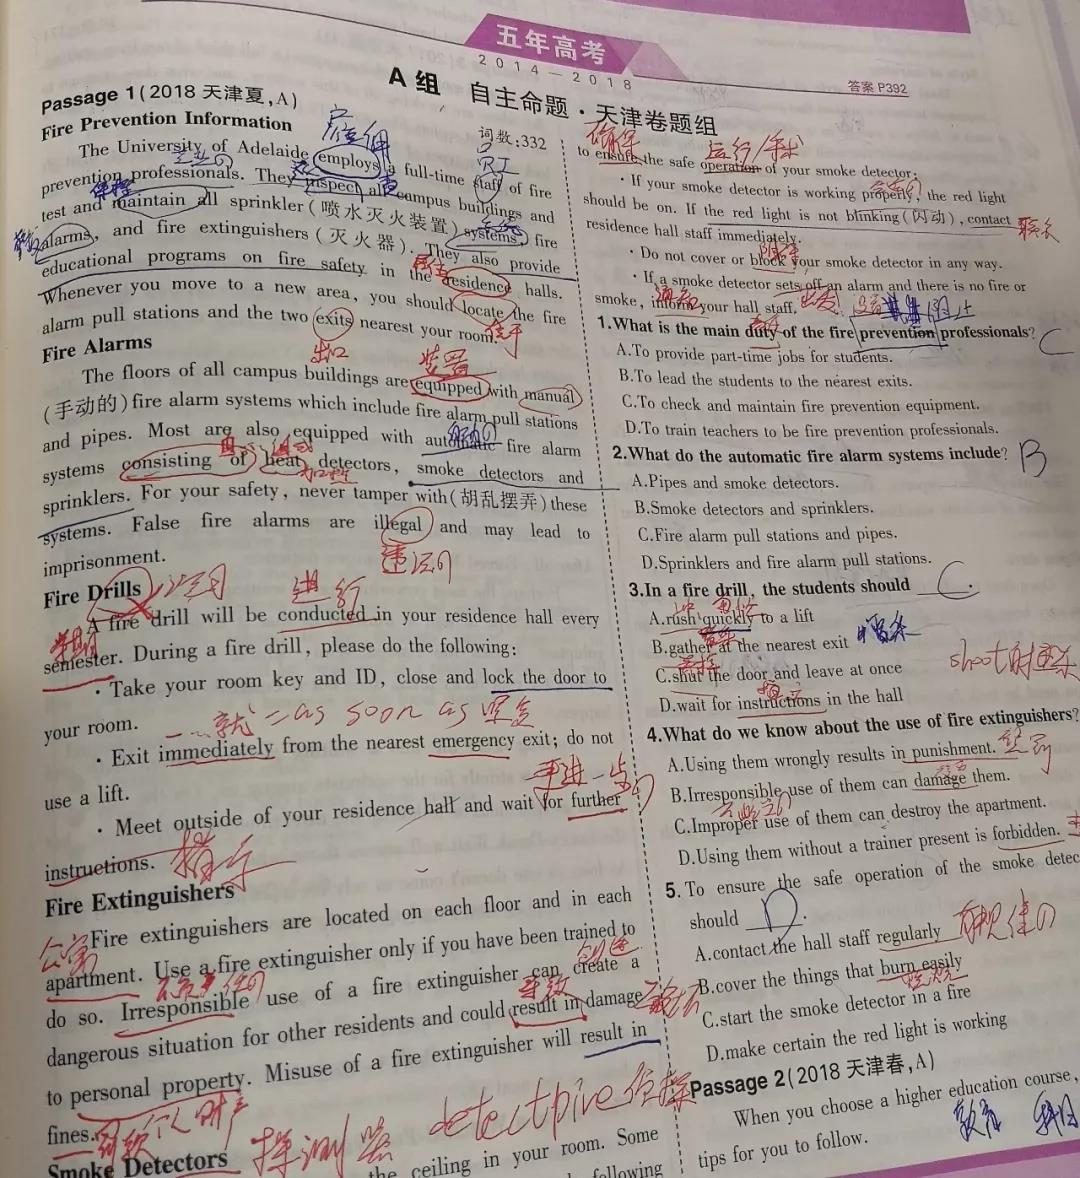 五年高考
2014—2018
答案 P392
A组 自主命题·天津卷题组
Passage 1(2018 天津夏,A)
Fire Prevention Information
词数:332
The University of Adelaide employs a full-time staff of fire
prevention professionals. They inspect all campus buildings and
test and maintain all sprinkler(喷水灭火装置)systems, fire
alarms, and fire extinguishers(灭火器). They also provide
educational programs on fire safety in the residence halls.
Whenever you move to a new area, you should locate the fire
alarm pull stations and the two exits nearest your room.
出口
Fire Alarms
装置
The floors of all campus buildings are equipped with manual
(手动的)fire alarm systems which include fire alarm pull stations
and pipes. Most are also equipped with automatic fire alarm
systems consisting of heat detectors, smoke detectors and
sprinklers. For your safety, never tamper with(胡乱摆弄)these
systems. False fire alarms are illegal and may lead to
imprisonment.
违法的
Fire Drills
进行
A fire drill will be conducted in your residence hall every
学期
semester. During a fire drill, please do the following:
· Take your room key and ID, close and lock the door to
your room.
一…就 = as soon as
· Exit immediately from the nearest emergency exit; do not
use a lift.
· Meet outside of your residence hall and wait for further
instructions.
指示
Fire Extinguishers
Fire extinguishers are located on each floor and in each
公寓
apartment. Use a fire extinguisher only if you have been trained to
创造
do so. Irresponsible use of a fire extinguisher can create a
不负责任的
导致
dangerous situation for other residents and could result in damage
to personal property. Misuse of a fire extinguisher will result in
fines.
罚款
个人财产
Smoke Detectors
探测器
detectpive 侦探
the ceiling in your room. Some
following
确保
运行/手术
to ensure the safe operation of your smoke detector:
· If your smoke detector is working properly, the red light
should be on. If the red light is not blinking(闪动), contact
联系
residence hall staff immediately.
· Do not cover or block your smoke detector in any way.
· If a smoke detector sets off an alarm and there is no fire or
通知
smoke, inform your hall staff.
1.What is the main duty of the fire prevention professionals?
C
A.To provide part-time jobs for students.
B.To lead the students to the nearest exits.
C.To check and maintain fire prevention equipment.
D.To train teachers to be fire prevention professionals.
2.What do the automatic fire alarm systems include?
B
A.Pipes and smoke detectors.
B.Smoke detectors and sprinklers.
C.Fire alarm pull stations and pipes.
D.Sprinklers and fire alarm pull stations.
3.In a fire drill, the students should C.
A.rush quickly to a lift
B.gather at the nearest exit
C.shut the door and leave at once
D.wait for instructions in the hall
4.What do we know about the use of fire extinguishers?
A.Using them wrongly results in punishment.
惩罚
B.Irresponsible use of them can damage them.
C.Improper use of them can destroy the apartment.
D.Using them without a trainer present is forbidden.
5.To ensure the safe operation of the smoke detec
should D.
A.contact the hall staff regularly
有规律的
B.cover the things that burn easily
燃烧
C.start the smoke detector in a fire
D.make certain the red light is working
Passage 2(2018 天津春,A)
When you choose a higher education course,
教育
tips for you to follow.